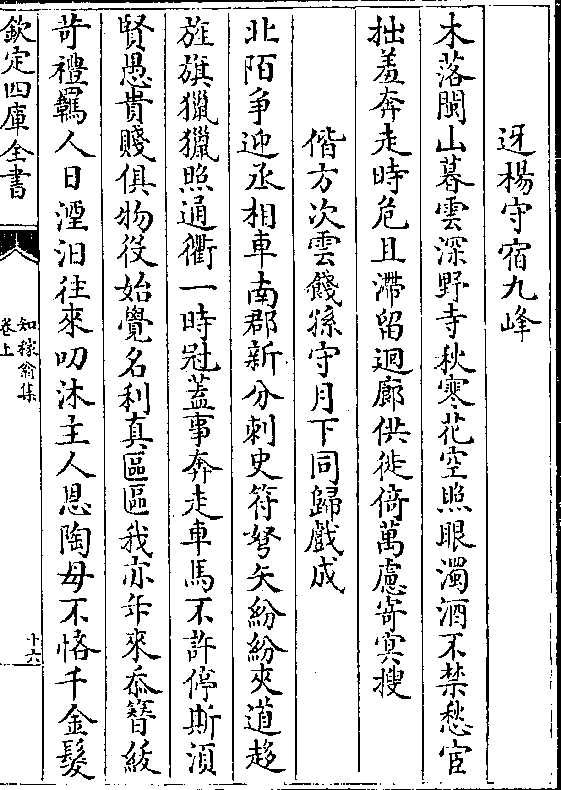 迓楊守宿九峰
木落閩山暮雲深野寺秋寒花空照眼濁酒不禁愁宦
拙羞奔走時危且滯留迴廊供徙倚萬慮寄冥搜
偕方次雲餞孫守月下同歸戲成
北陌爭迎丞相車南郡新分刺史符弩矢紛紛夾道趍
旌旗獵獵照通衢一時冠蓋事奔走車馬不許停斯湏
賢愚貴賤俱物役始覺名利真區區我亦年來忝簪紱
苛禮羈人日湮汩往來叨沐主人恩陶母不恡千金髮
欽定四庫全書
知稼翁集
卷上
十六